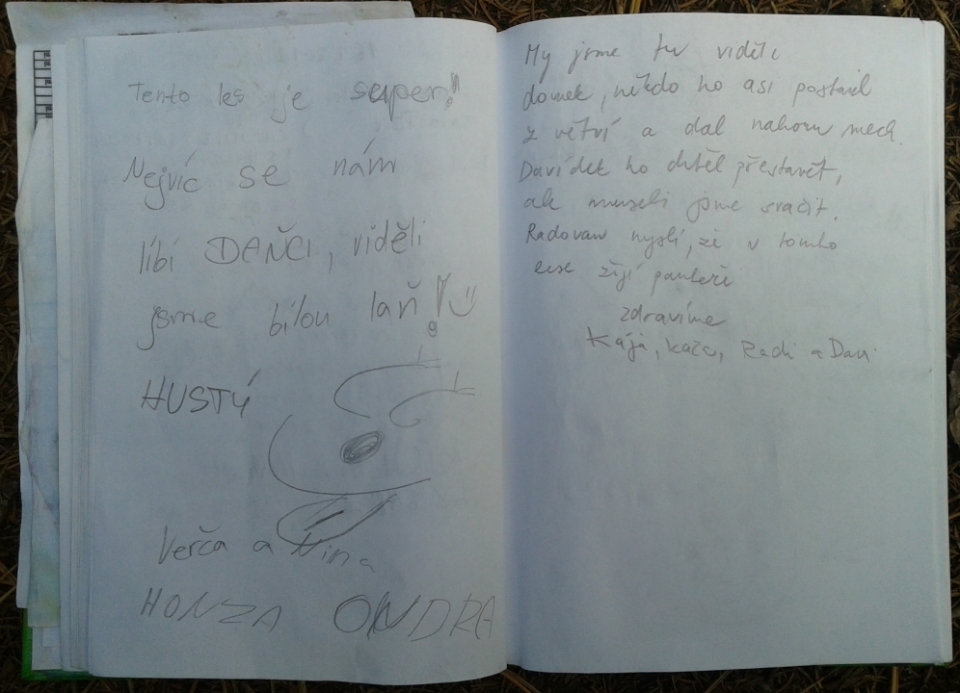 Tento les je super!
Nejvíc se nám
líbí DAŇCI, viděli
jsme bílou laň! :)
HUSTÝ
Verča a Nina
HONZA ONDRA
My jsme tu viděli
domek, někdo ho asi postavil
z větví a dal nahoru mech.
Davídek ho chtěl přestavět,
ale museli jsme svačit.
Radovan myslí, že v tomto
lese žijí panteři
zdravíme
Kája, Kača, Radi a Davi